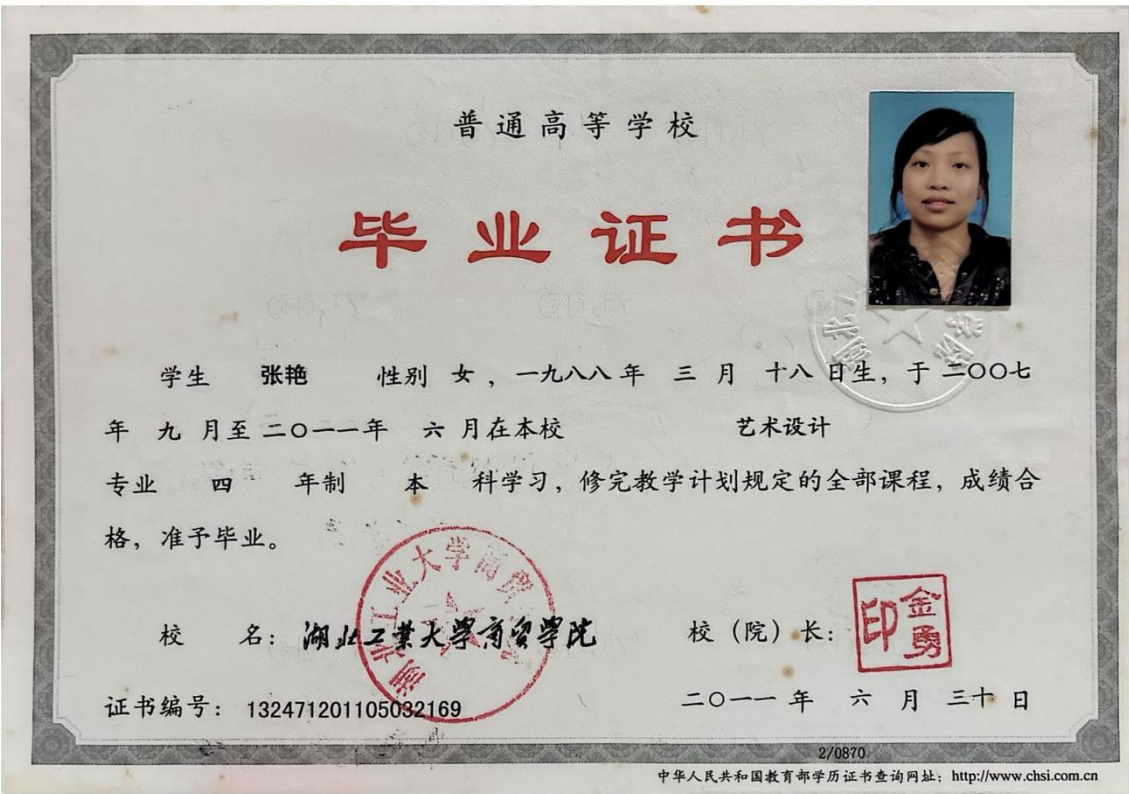 普通高等学校
毕业证书
学生 张艳 性别 女，一九八八年 三 月 十八 日生，于 二〇〇七
年 九 月至 二〇一一年 六 月在本校 艺术设计
专业 四 年制 本 科学习，修完教学计划规定的全部课程，成绩合
格，准予毕业。
湖北工业大学商贸
校 名：湖北工业大学商贸学院
校（院）长：
金勇印
证书编号：132471201105032169
二〇一一 年 六 月 三十 日
2/0870
中华人民共和国教育部学历证书查询网址：http://www.chsi.com.cn